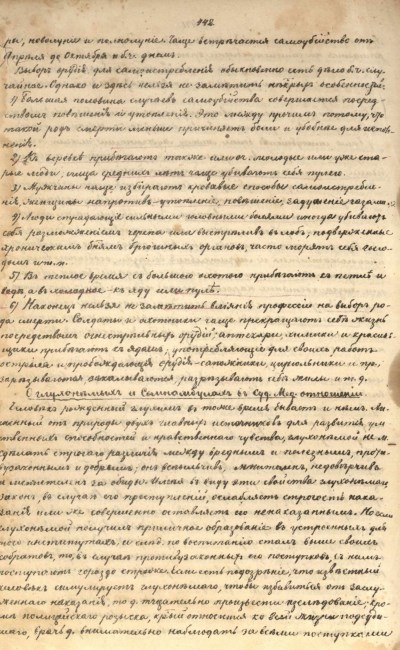 142
ры, новолуние и полнолуние. Чаще встречается самоубийство отъ
Апреля до Октября и бч. днемъ.
Выборъ орудія для самоистребленія обыкновенно есть дѣло бч. слу-
чайное. Однако и здѣсь нельзя не замѣтить некторыя особенности:
1) Большая половина случаевъ самоубійства совершается посред-
ствомъ повѣшенія и утопленія. Это между прочимъ потому, что
такой родъ смерти меньше причиняетъ боли и удобнее для испол-
ненія.
2) прибегаютъ также молодые или уже ста-
рые люди, лица среднихъ лѣтъ чаще убиваютъ себя пулею.
3) Мущины чаще избираютъ кровавые способы самоистребле-
нія, женщины напротивъ - утопленіе, повѣшеніе, задушеніе газами.
4) Люди страдающіе сильными головными болями иногда убиваютъ
себя размозженіемъ черепа или выстрѣливъ въ лобъ, подверженные
хроническимъ бтямъ брюшныхъ органовъ, часто морятъ себя голо-
домъ и т. п.
5) Въ теплое время съ большою охотою прибегаютъ къ петлѣ и
водѣ, а въ холодное - къ яду или пулѣ.
6) Наконецъ нельзя не замѣтить вліянія профессіи на выборъ ро-
да смерти. Солдаты и охотники чаще прекращаютъ себѣ жизнь
посредствомъ огнестрѣльныхъ орудій, аптекари, химики и красиль-
щики прибегаютъ къ ядамъ, употребляющіе для своихъ работъ
острыя и прободающія орудія - сапожники, цирюльники и пр.,
зарѣзываются, закалываются, разрѣзываютъ себѣ жилы и т. д.
О глухонѣмыхъ и Сомнамбулахъ въ Суд. Мед. отношеніи.
Человѣкъ рожденный глухимъ въ тоже время бываетъ и нѣмъ. Ли-
шенный отъ природы двухъ главныхъ источниковъ для развитія ум-
ственныхъ способностей и нравственнаго чувства, глухонѣмой не м.
сдѣлать строгаго различія между вреднымъ и полезнымъ, проти-
возаконнымъ и добрымъ; онъ вспыльчивъ, мнителенъ, недовѣрчивъ
и мстителенъ за обиды. Имѣя въ виду эти свойства глухонѣмаго
законъ, въ случаѣ его преступленій, ослабляетъ строгость нака-
занія или же совершенно оставляетъ его ненаказаннымъ. Но если
глухонѣмой получилъ приличное образованіе въ устроенныхъ для
того институтахъ, и слѣд. по воспитанію сталъ выше своихъ
собратовъ, то, въ случаѣ противузаконныхъ его поступковъ, съ нимъ
поступаютъ гораздо строже. Если есть подозрѣніе, что извѣстный
человѣкъ симулируетъ глухонѣмаго, чтобы избавиться отъ заслу-
женнаго наказанія, то д. тщательно произвести изслѣдованіе; кро-
мѣ полицейскаго розыска, кой относится ко всей жизни подсуди-
маго, врачъ д. внимательно наблюдать за всѣми поступками